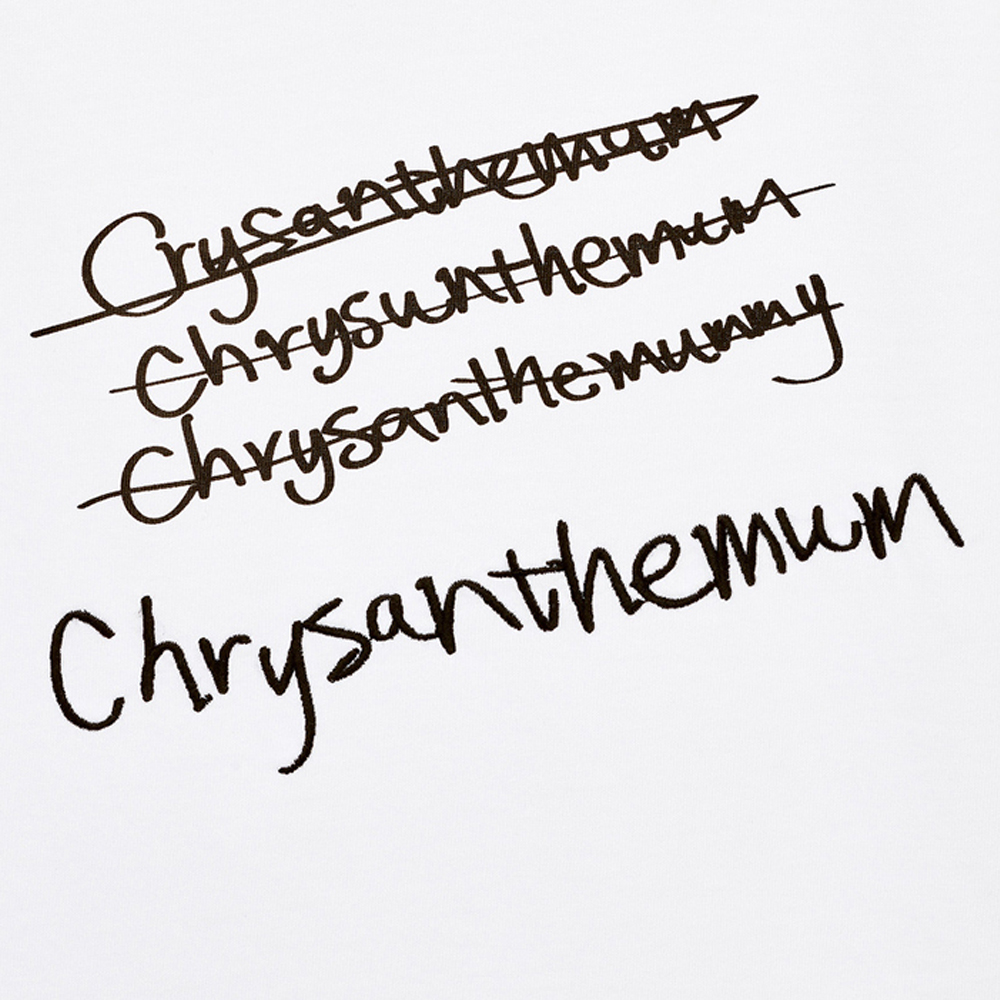 Crysanthemam
Chrysunthemum
Chrysanthemummy
Chrysanthemum